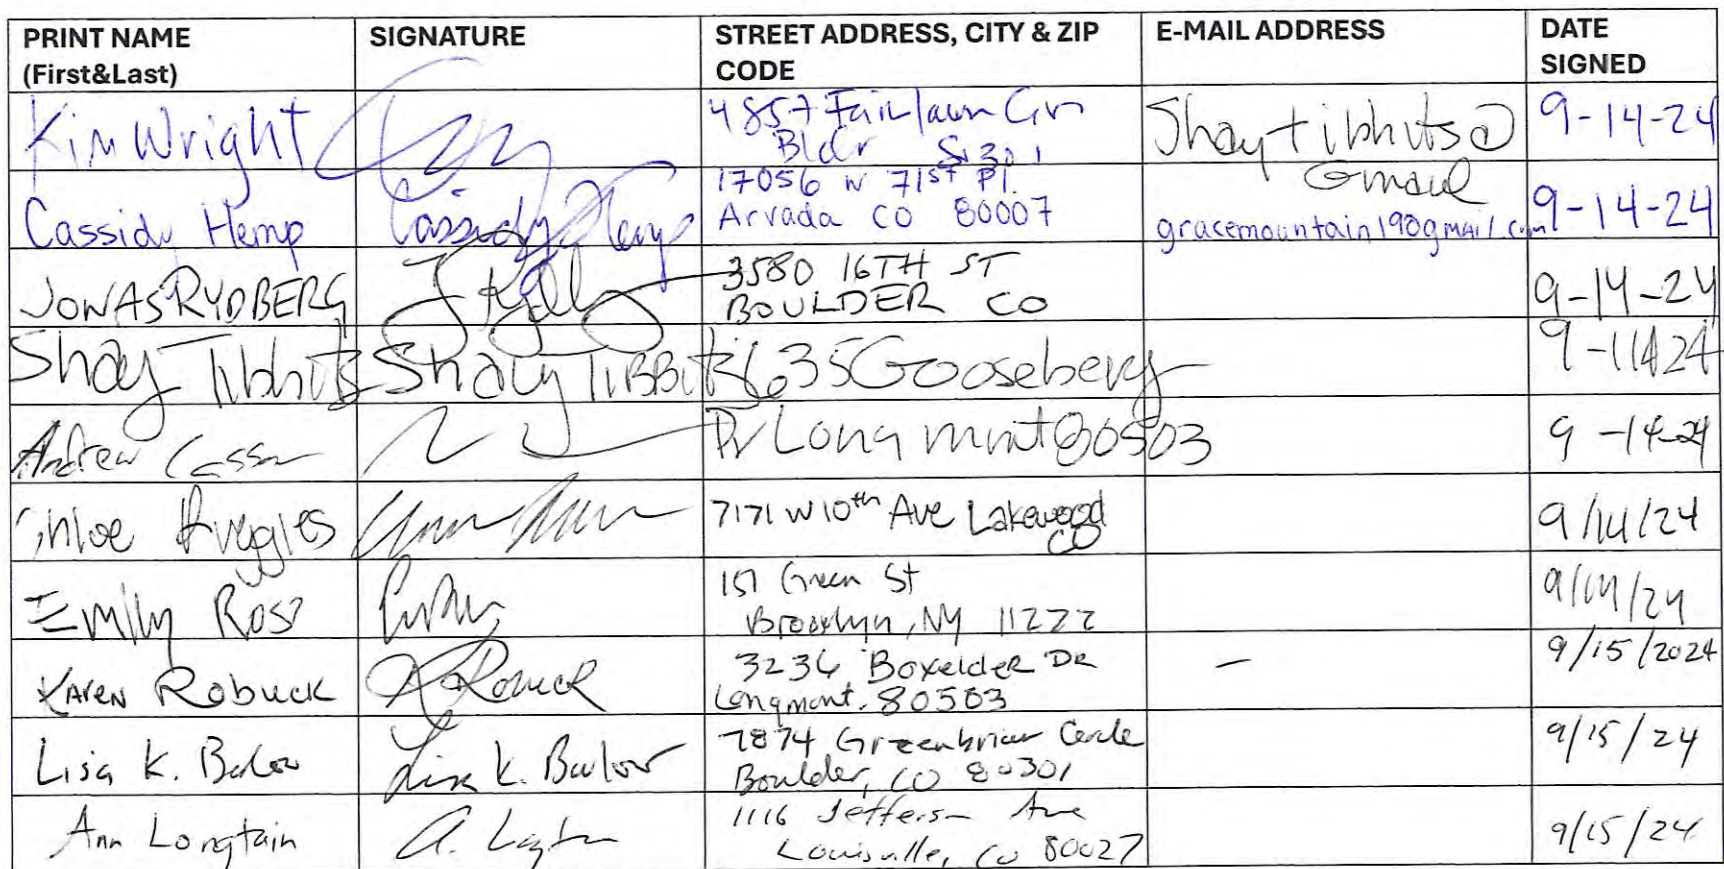 PRINT NAME (First&Last) SIGNATURE STREET ADDRESS, CITY & ZIP CODE E-MAIL ADDRESS DATE SIGNED
Kim Wright 4857 Fairlawn Cir 9-14-24
Bldr
Gmail
Cassidy Hemp Cassidy Hemp 17056 W 71st Pl.
Arvada CO 80007 gracemountain190gmail.com 9-14-24
JONAS RYDBERG 3580 16TH ST
BOULDER CO 9-14-24
Shay Tibbits Shay TIBBITS 635 Gooseberry
Andrew Dr Longmont 80503 9-14-24
Chloe Ruggles 7171 W 10th Ave Lakewood
CO 9/14/24
Emily Ross 151 Green St
Brooklyn, NY 11222 9/14/24
KAREN ROBUCK 3236 BoxeldeR DR — 9/15/2024
Longmont, 80503
Lisa K. Barlow Lisa K. Barlow 7874 Greenbriar Circle 9/15/24
Boulder, CO 80301
Ann Longtain 1116 Jefferson Ave
Louisville, CO 80027 9/15/24